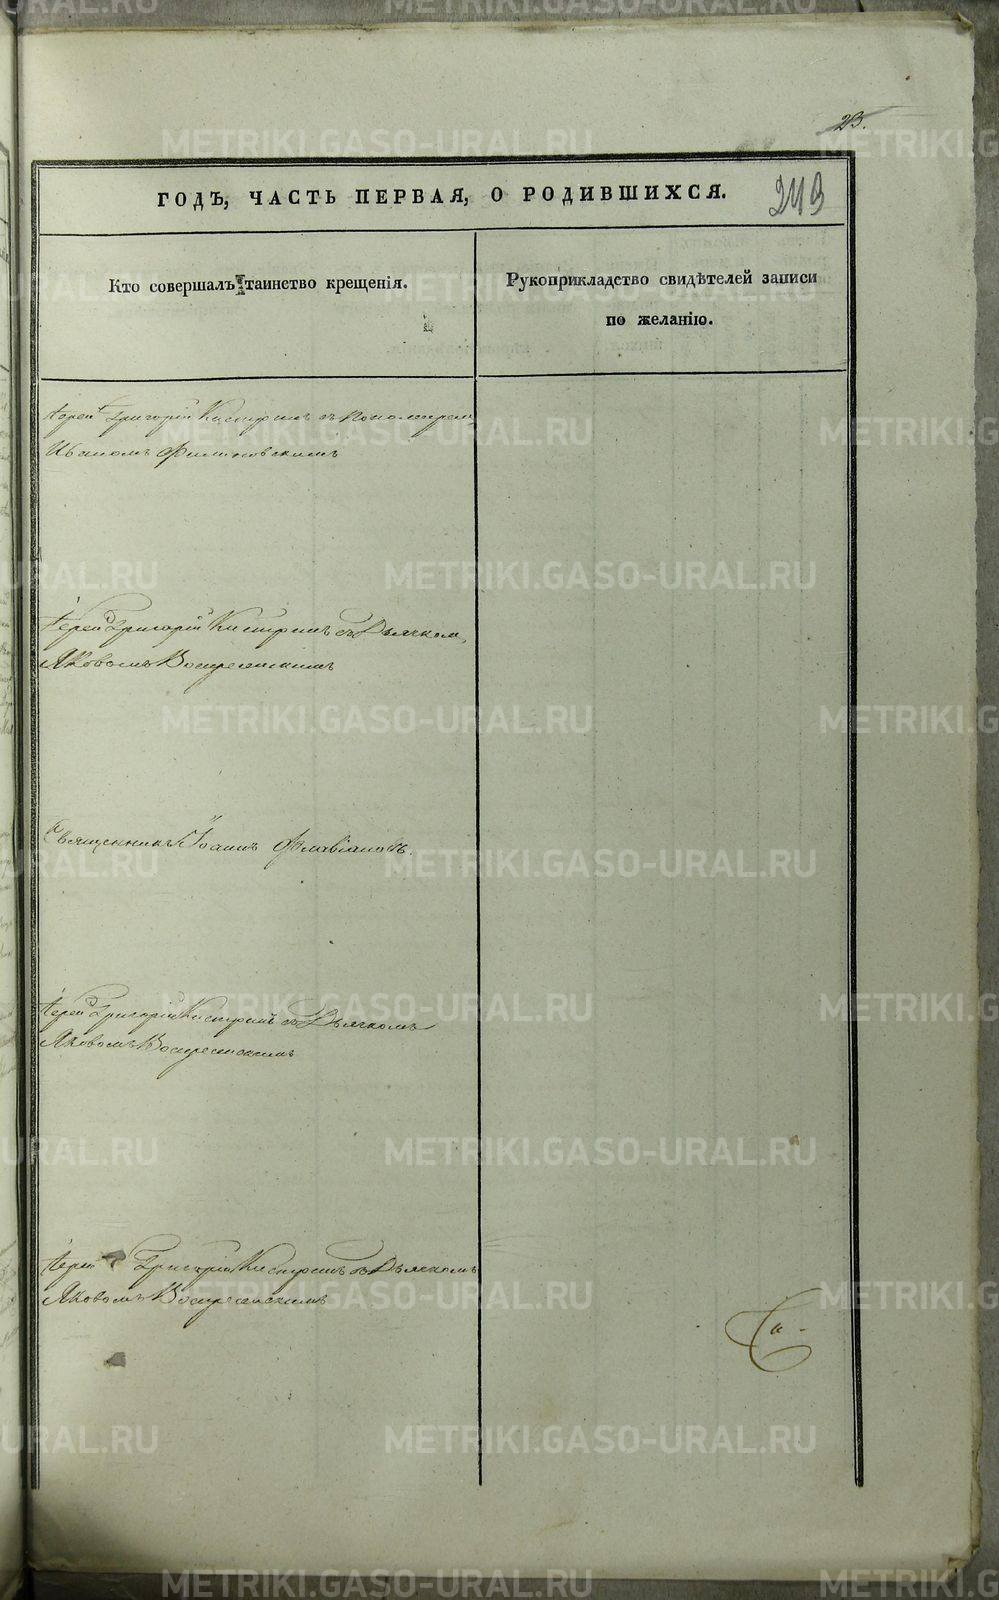 23.
ГОДЪ, ЧАСТЬ ПЕРВАЯ, О РОДИВШИХСЯ.
243
Кто совершалъ таинство крещенія.
Рукоприкладство свидѣтелей записи
по желанію.
Іерей Григорій Кистринъ съ пономаремъ
Иваномъ Филиповскимъ
Іерей Григорій Кистринъ съ Дьячкомъ
Яковомъ Воскресенскимъ
Священникъ Іоаннъ Флавіановъ.
Іерей Григорій Кистринъ съ Дьячкомъ
Яковомъ Воскресенскимъ
Іерей Григорій Кистринъ съ Дьячкомъ
Яковомъ Воскресенскимъ
METRIKI.GASO-URAL.RU